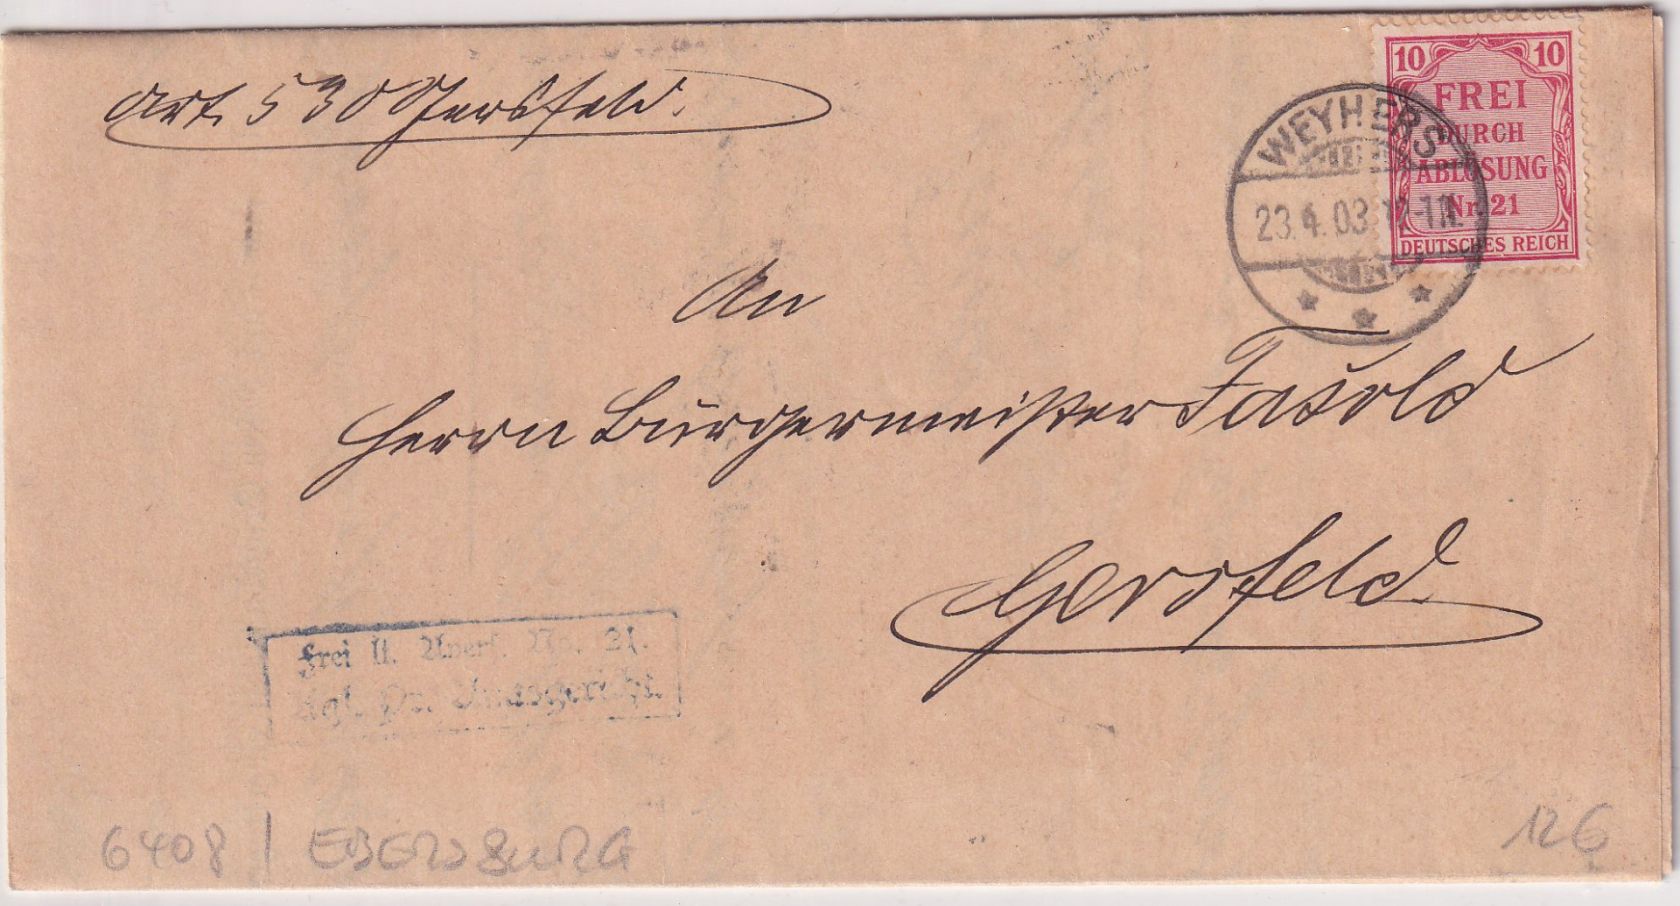 Art. 530 Gersfeld.
10 10
FREI
DURCH
ABLÖSUNG
Nr. 21
DEUTSCHES REICH
WEYHERS
23.4.03
An
Herrn Bürgermeister Fasold
Gersfeld
Frei lt. Avers. No. 21.
Kgl. Pr. Amtsgericht.
6408 | EBERSBURG